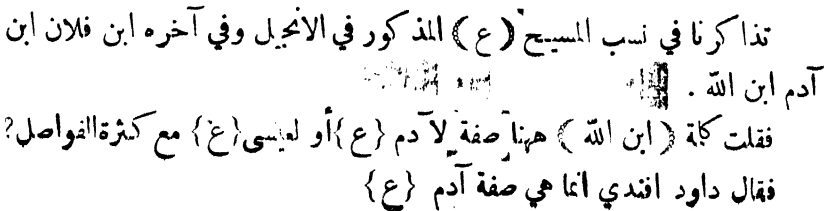 تذاكرنا في نسب المسيح (ع) المذكور في الانجيل وفي آخره ابن فلان ابن
آدم ابن الله .
فقلت كلمة (ابن الله) ههنا صفة لآدم {ع} أو لعيسى {غ} مع كثرة الفواصل؟
فقال داود افندي انما هي صفة آدم {ع}